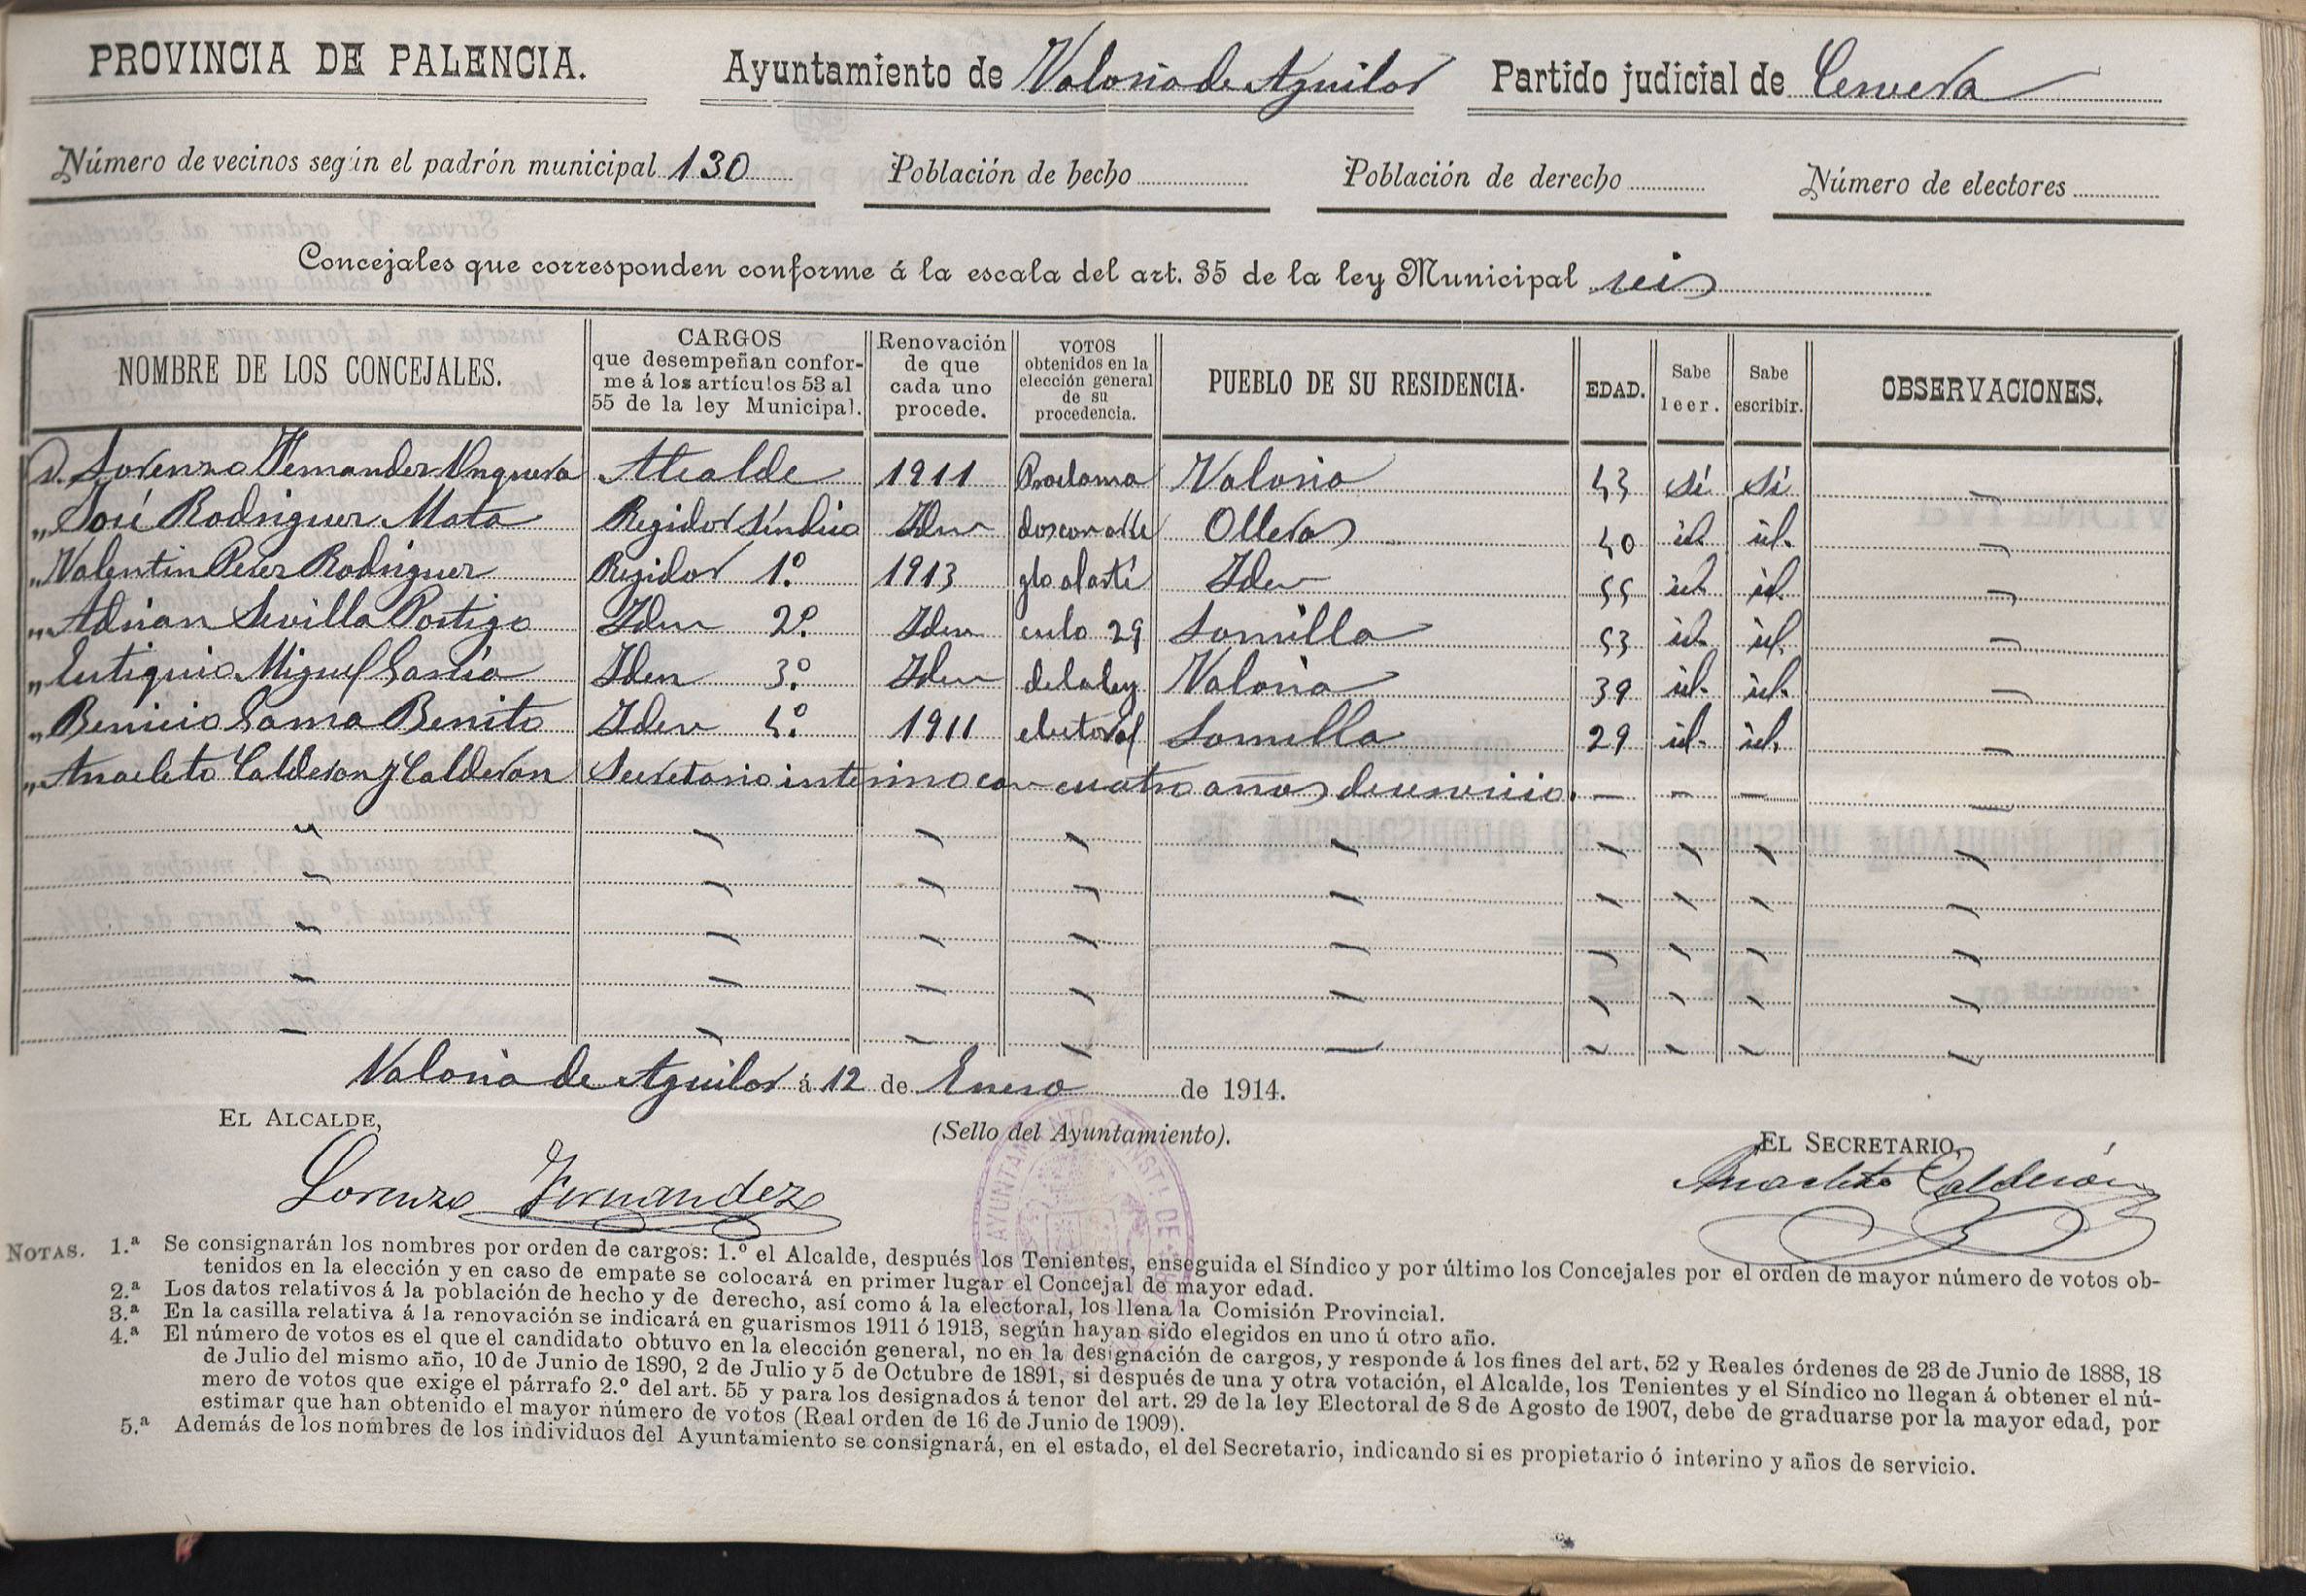 PROVINCIA DE PALENCIA. Ayuntamiento de Valoria de Aguilar Partido judicial de Cervera
Número de vecinos según el padrón municipal 130 Población de hecho Población de derecho Número de electores
Concejales que corresponden conforme á la escala del art. 35 de la ley Municipal seis
NOMBRE DE LOS CONCEJALES. CARGOS que desempeñan conforme á los artículos 53 al 55 de la ley Municipal. Renovación de que cada uno procede. VOTOS obtenidos en la elección general de su procedencia. PUEBLO DE SU RESIDENCIA. EDAD. Sabe leer. Sabe escribir. OBSERVACIONES.
D. Lorenzo Fernandez Unquera Alcalde 1911 Proclama Valoria 43 sí sí —
„ José Rodriguez Mata Regidor Síndico Idem dos con arre Olleros 40 id. id. —
„ Valentin Perez Rodriguez Regidor 1.º 1913 glo al artí Idem 55 id. id. —
„ Adrian Sevilla Postigo Idem 2º. Idem culo 29 Lomilla 53 id. id. —
„ Eutiquio Miguel García Idem 3.º Idem de la ley Valoria 39 id. id. —
„ Benicio Gama Benito Idem 4.º 1911 electoral Lomilla 29 id. id. —
„ Anacleto Calderon y Calderon Secretario interino con cuatro años de servicio. — — — —
Valoria de Aguilar á 12 de Enero de 1914.
EL ALCALDE, (Sello del Ayuntamiento). EL SECRETARIO,
Lorenzo Fernandez Anacleto Calderón
AYUNTAMIENTO CONSTL. DE
NOTAS. 1.ª Se consignarán los nombres por orden de cargos: 1.º el Alcalde, después los Tenientes, enseguida el Síndico y por último los Concejales por el orden de mayor número de votos ob-
tenidos en la elección y en caso de empate se colocará en primer lugar el Concejal de mayor edad.
2.ª Los datos relativos á la población de hecho y de derecho, así como á la electoral, los llena la Comisión Provincial.
3.ª En la casilla relativa á la renovación se indicará en guarismos 1911 ó 1913, según hayan sido elegidos en uno ú otro año.
4.ª El número de votos es el que el candidato obtuvo en la elección general, no en la designación de cargos, y responde á los fines del art. 52 y Reales órdenes de 23 de Junio de 1888, 18
de Julio del mismo año, 10 de Junio de 1890, 2 de Julio y 5 de Octubre de 1891, si después de una y otra votación, el Alcalde, los Tenientes y el Síndico no llegan á obtener el nú-
mero de votos que exige el párrafo 2.º del art. 55 y para los designados á tenor del art. 29 de la ley Electoral de 8 de Agosto de 1907, debe de graduarse por la mayor edad, por
estimar que han obtenido el mayor número de votos (Real orden de 16 de Junio de 1909).
5.ª Además de los nombres de los individuos del Ayuntamiento se consignará, en el estado, el del Secretario, indicando si es propietario ó interino y años de servicio.